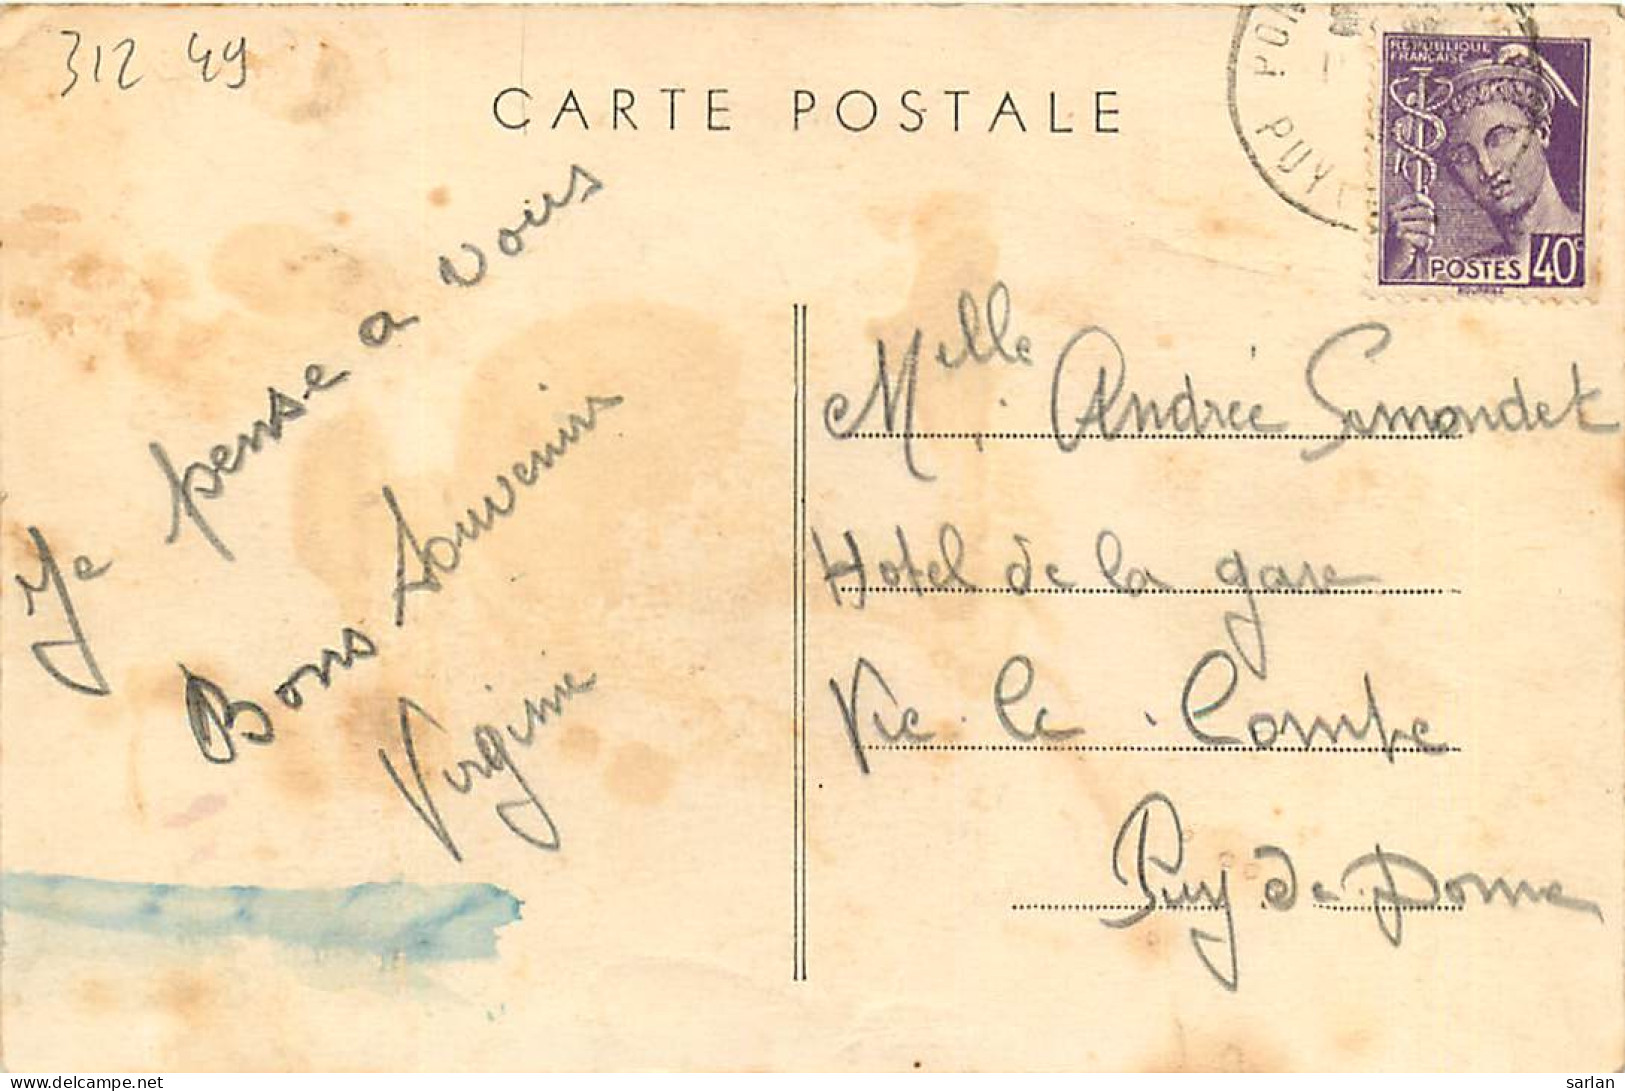 312 49
CARTE POSTALE
PUY
RÉPUBLIQUE
FRANÇAISE
POSTES 40c
Je pense a vous
Bons Souvenirs
Virginie
Melle Andrée Simondet
Hotel de la gare
Vic le Comte
Puy de Dome
www.delcampe.net
sarlan